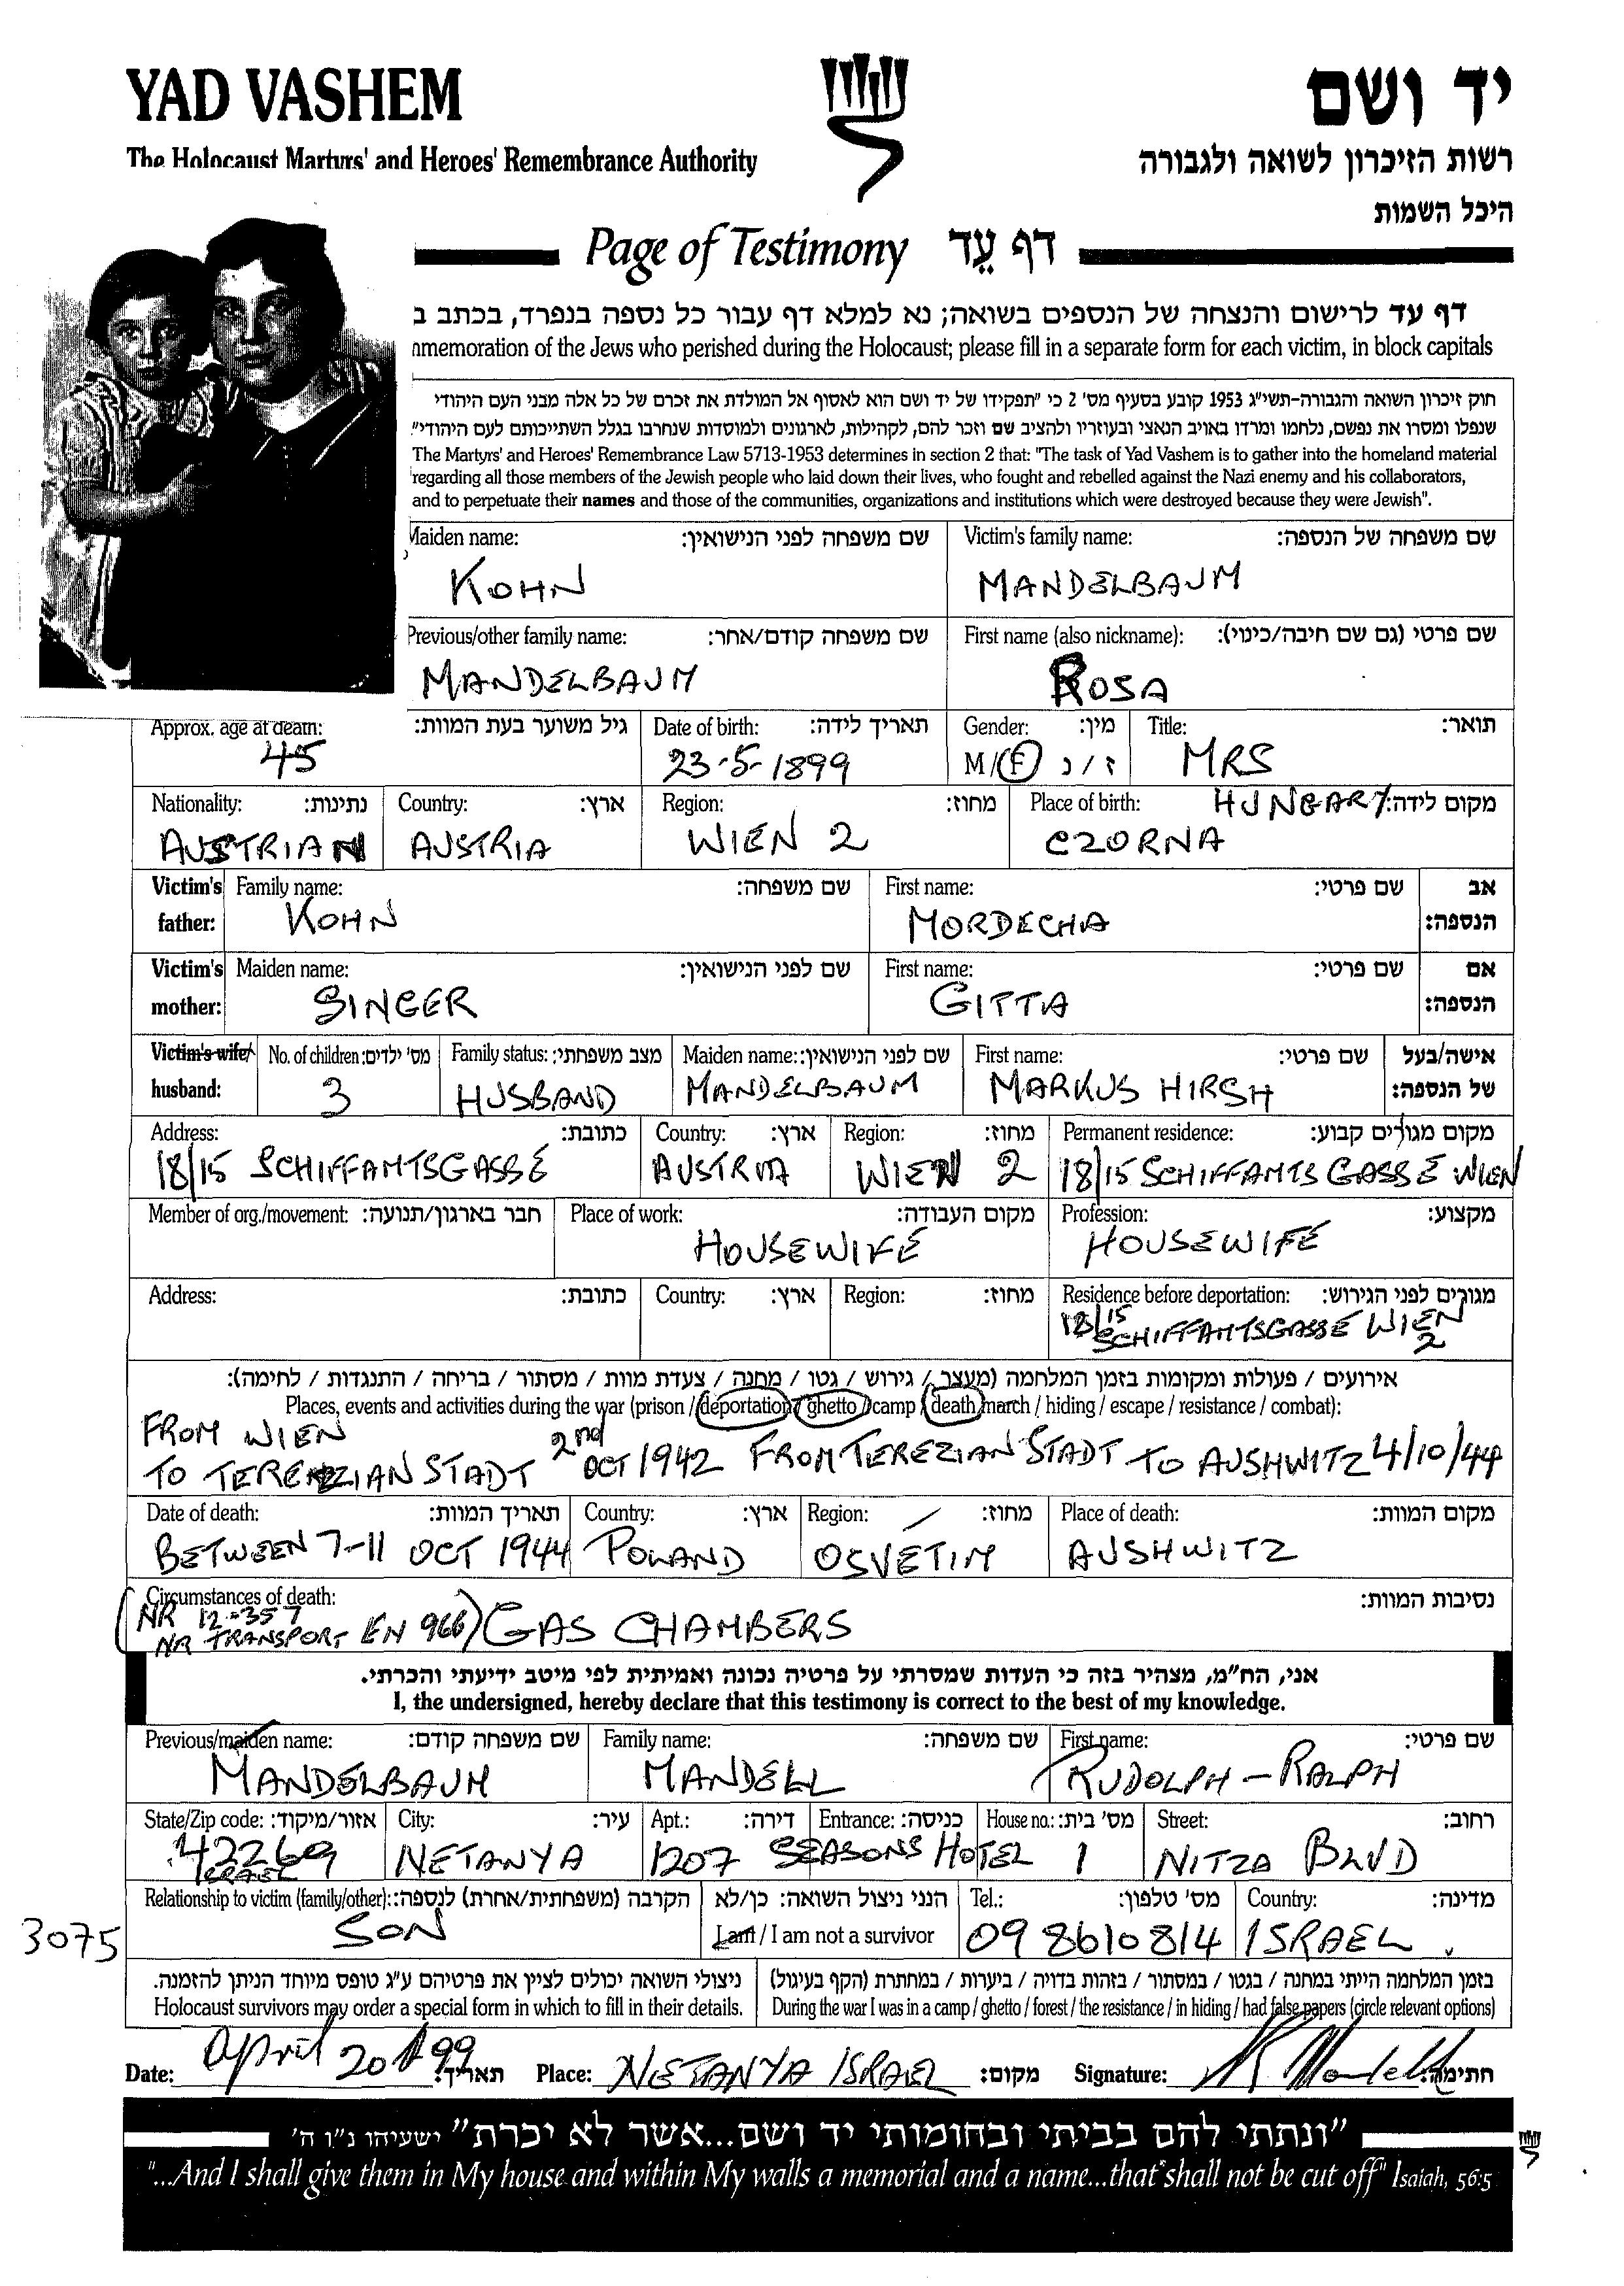 YAD VASHEM
יד ושם
The Holocaust Martyrs' and Heroes' Remembrance Authority
רשות הזיכרון לשואה ולגבורה
היכל השמות
Page of Testimony דף עֵד
דף עד לרישום והנצחה של הנספים בשואה; נא למלא דף עבור כל נספה בנפרד, בכתב ב
nmemoration of the Jews who perished during the Holocaust; please fill in a separate form for each victim, in block capitals
חוק זיכרון השואה והגבורה-תשי"ג 1953 קובע בסעיף מס' 2 כי "תפקידו של יד ושם הוא לאסוף אל המולדת את זכרם של כל אלה מבני העם היהודי
שנפלו ומסרו את נפשם, נלחמו ומרדו באויב הנאצי ובעוזריו ולהציב שם וזכר להם, לקהילות, לארגונים ולמוסדות שנחרבו בגלל השתייכותם לעם היהודי".
The Martyrs' and Heroes' Remembrance Law 5713-1953 determines in section 2 that: "The task of Yad Vashem is to gather into the homeland material
regarding all those members of the Jewish people who laid down their lives, who fought and rebelled against the Nazi enemy and his collaborators,
and to perpetuate their names and those of the communities, organizations and institutions which were destroyed because they were Jewish".
Maiden name: שם משפחה לפני הנישואין: Victim's family name: שם משפחה של הנספה:
KOHN MANDELBAUM
Previous/other family name: שם משפחה קודם/אחר: First name (also nickname): שם פרטי (גם שם חיבה/כינוי):
MANDELBAUM ROSA
Approx. age at death: גיל משוער בעת המוות: Date of birth: תאריך לידה: Gender: מין: Title: תואר:
45 23-5-1899 M/F ז/נ MRS
Nationality: נתינות: Country: ארץ: Region: מחוז: Place of birth: HUNGARY מקום לידה:
AUSTRIAN AUSTRIA WIEN 2 CZORNA
Victim's Family name: שם משפחה: First name: שם פרטי: אב
father: KOHN MORDECHA הנספה:
Victim's Maiden name: שם לפני הנישואין: First name: שם פרטי: אם
mother: SINGER GITTA הנספה:
Victim's wife/ No. of children: מס' ילדים: Family status: מצב משפחתי: Maiden name: שם לפני הנישואין: First name: שם פרטי: אישה/בעל
husband: 3 HUSBAND MANDELBAUM MARKUS HIRSH של הנספה:
Address: כתובת: Country: ארץ: Region: מחוז: Permanent residence: מקום מגורים קבוע:
18/15 SCHIFFAMTSGASSE AUSTRIA WIEN 2 18/15 SCHIFFAMTS GASSE WIEN
Member of org./movement: חבר בארגון/תנועה: Place of work: מקום העבודה: Profession: מקצוע:
HOUSEWIFE HOUSEWIFE
Address: כתובת: Country: ארץ: Region: מחוז: Residence before deportation: מגורים לפני הגירוש:
18/15
SCHIFFAMTSGASSE WIEN
2
אירועים / פעולות ומקומות בזמן המלחמה (מעצר / גירוש / גטו / מחנה / צעדת מוות / מסתור / בריחה / התנגדות / לחימה):
Places, events and activities during the war (prison / deportation / ghetto / camp / death march / hiding / escape / resistance / combat):
FROM WIEN
TO TEREZIAN STADT 2nd OCT 1942 FROM TEREZIAN STADT TO AUSHWITZ 4/10/44
Date of death: תאריך המוות: Country: ארץ: Region: מחוז: Place of death: מקום המוות:
BETWEEN 7-11 OCT 1944 POLAND OSVETIM AUSHWITZ
Circumstances of death: נסיבות המוות:
(NR 12-357
NR TRANSPORT EN 966) GAS CHAMBERS
אני, הח"מ, מצהיר בזה כי העדות שמסרתי על פרטיה נכונה ואמיתית לפי מיטב ידיעתי והכרתי.
I, the undersigned, hereby declare that this testimony is correct to the best of my knowledge.
Previous/maiden name: שם משפחה קודם: Family name: שם משפחה: First name: שם פרטי:
MANDELBAUM MANDELL RUDOLPH - RALPH
State/Zip code: אזור/מיקוד: City: עיר: Apt.: דירה: Entrance: כניסה: House no.: מס' בית: Street: רחוב:
42269 NETANYA 1207 SEASONS HOTEL 1 NITZA BLVD
ISRAEL
Relationship to victim (family/other): הקרבה (משפחתית/אחרת) לנספה: הנני ניצול השואה: כן/לא Tel.: מס' טלפון: Country: מדינה:
3075 SON I am / I am not a survivor 09 8610814 ISRAEL
ניצולי השואה יכולים לציין את פרטיהם ע"ג טופס מיוחד הניתן להזמנה. בזמן המלחמה הייתי במחנה / בגטו / במסתור / בזהות בדויה / ביערות / במחתרת (הקף בעיגול)
Holocaust survivors may order a special form in which to fill in their details. During the war I was in a camp / ghetto / forest / the resistance / in hiding / had false papers (circle relevant options)
Date: April 20 99 תאריך: Place: NETANYA ISRAEL מקום: Signature: R Mandell חתימה:
"ונתתי להם בביתי ובחומותי יד ושם...אשר לא יכרת" ישעיהו נ"ו ה'
"...And I shall give them in My house and within My walls a memorial and a name...that shall not be cut off" Isaiah, 56:5